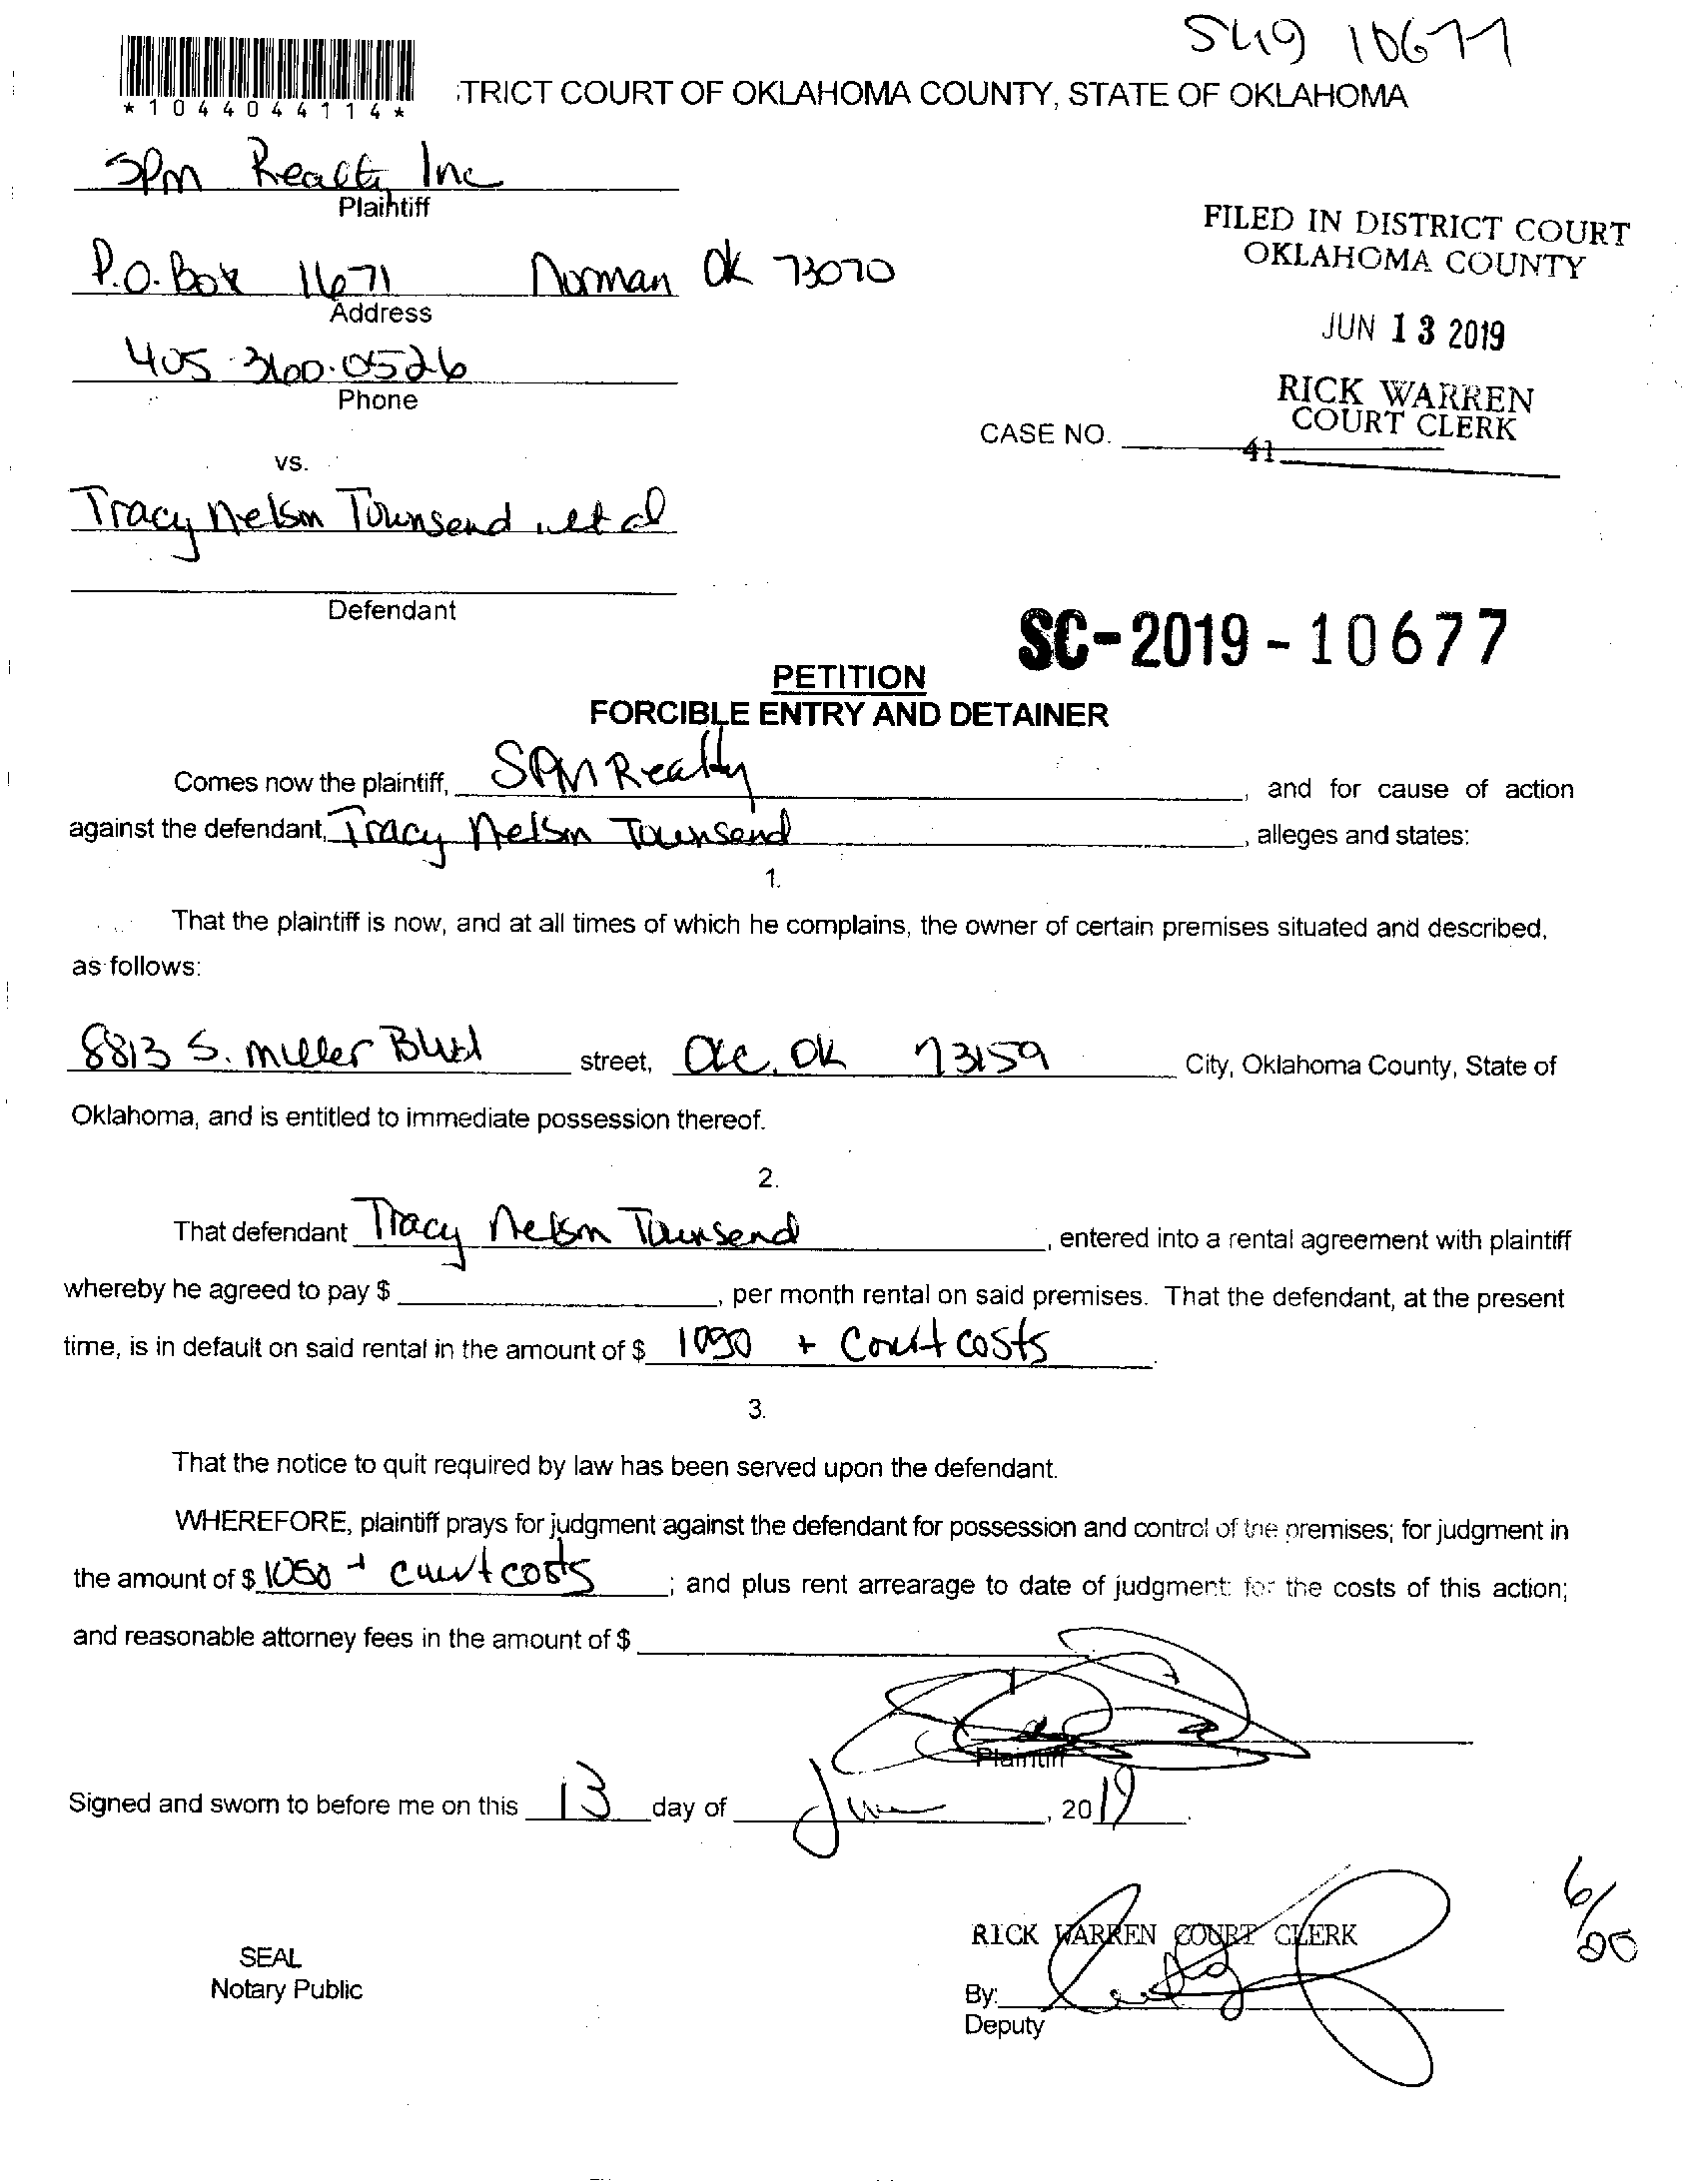 SC19 10677
*1044044114*
TRICT COURT OF OKLAHOMA COUNTY, STATE OF OKLAHOMA
SPM Realty Inc
Plaintiff
FILED IN DISTRICT COURT
OKLAHOMA COUNTY
P.O. Box 1671 Norman OK 73070
Address
JUN 13 2019
405-360-0526
Phone
RICK WARREN
COURT CLERK
CASE NO.
41
vs.
Tracy Nelson Townsend, et al
Defendant
SC-2019-10677
PETITION
FORCIBLE ENTRY AND DETAINER
Comes now the plaintiff, SPM Realty, and for cause of action
against the defendant, Tracy Nelson Townsend, alleges and states:
1.
That the plaintiff is now, and at all times of which he complains, the owner of certain premises situated and described,
as follows:
8813 S. Miller Blvd street, OKC, OK 73159 City, Oklahoma County, State of
Oklahoma, and is entitled to immediate possession thereof.
2.
That defendant Tracy Nelson Townsend, entered into a rental agreement with plaintiff
whereby he agreed to pay $ , per month rental on said premises. That the defendant, at the present
time, is in default on said rental in the amount of $ + Court costs.
3.
That the notice to quit required by law has been served upon the defendant.
WHEREFORE, plaintiff prays for judgment against the defendant for possession and control of the premises; for judgment in
the amount of $ 1050 + court costs; and plus rent arrearage to date of judgment: for the costs of this action;
and reasonable attorney fees in the amount of $
Plaintiff
Signed and sworn to before me on this 13 day of June, 2019.
6/20
RICK WARREN COURT CLERK
SEAL
Notary Public
By:
Deputy